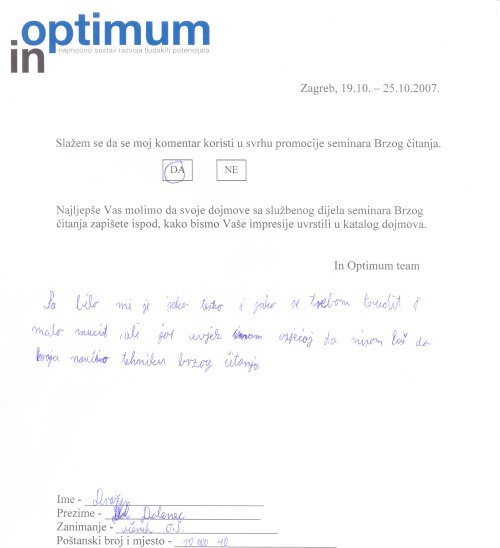 in optimum
najmoćniji sustav razvoja ljudskih potencijala
Zagreb, 19.10. – 25.10.2007.
Slažem se da se moj komentar koristi u svrhu promocije seminara Brzog čitanja.
DA NE
Najljepše Vas molimo da svoje dojmove sa službenog dijela seminara Brzog
čitanja zapišete ispod, kako bismo Vaše impresije uvrstili u katalog dojmova.
In Optimum team
Pa bilo mi je jako teško i jako se trebam trudit i
malo mučit, ali još uvjek imam osjećaj da nisam baš do
kraja naučio tehniku brzog čitanja
Ime - Dražen
Prezime - Dolenec
Zanimanje - učenik O.Š.
Poštanski broj i mjesto - 10 000